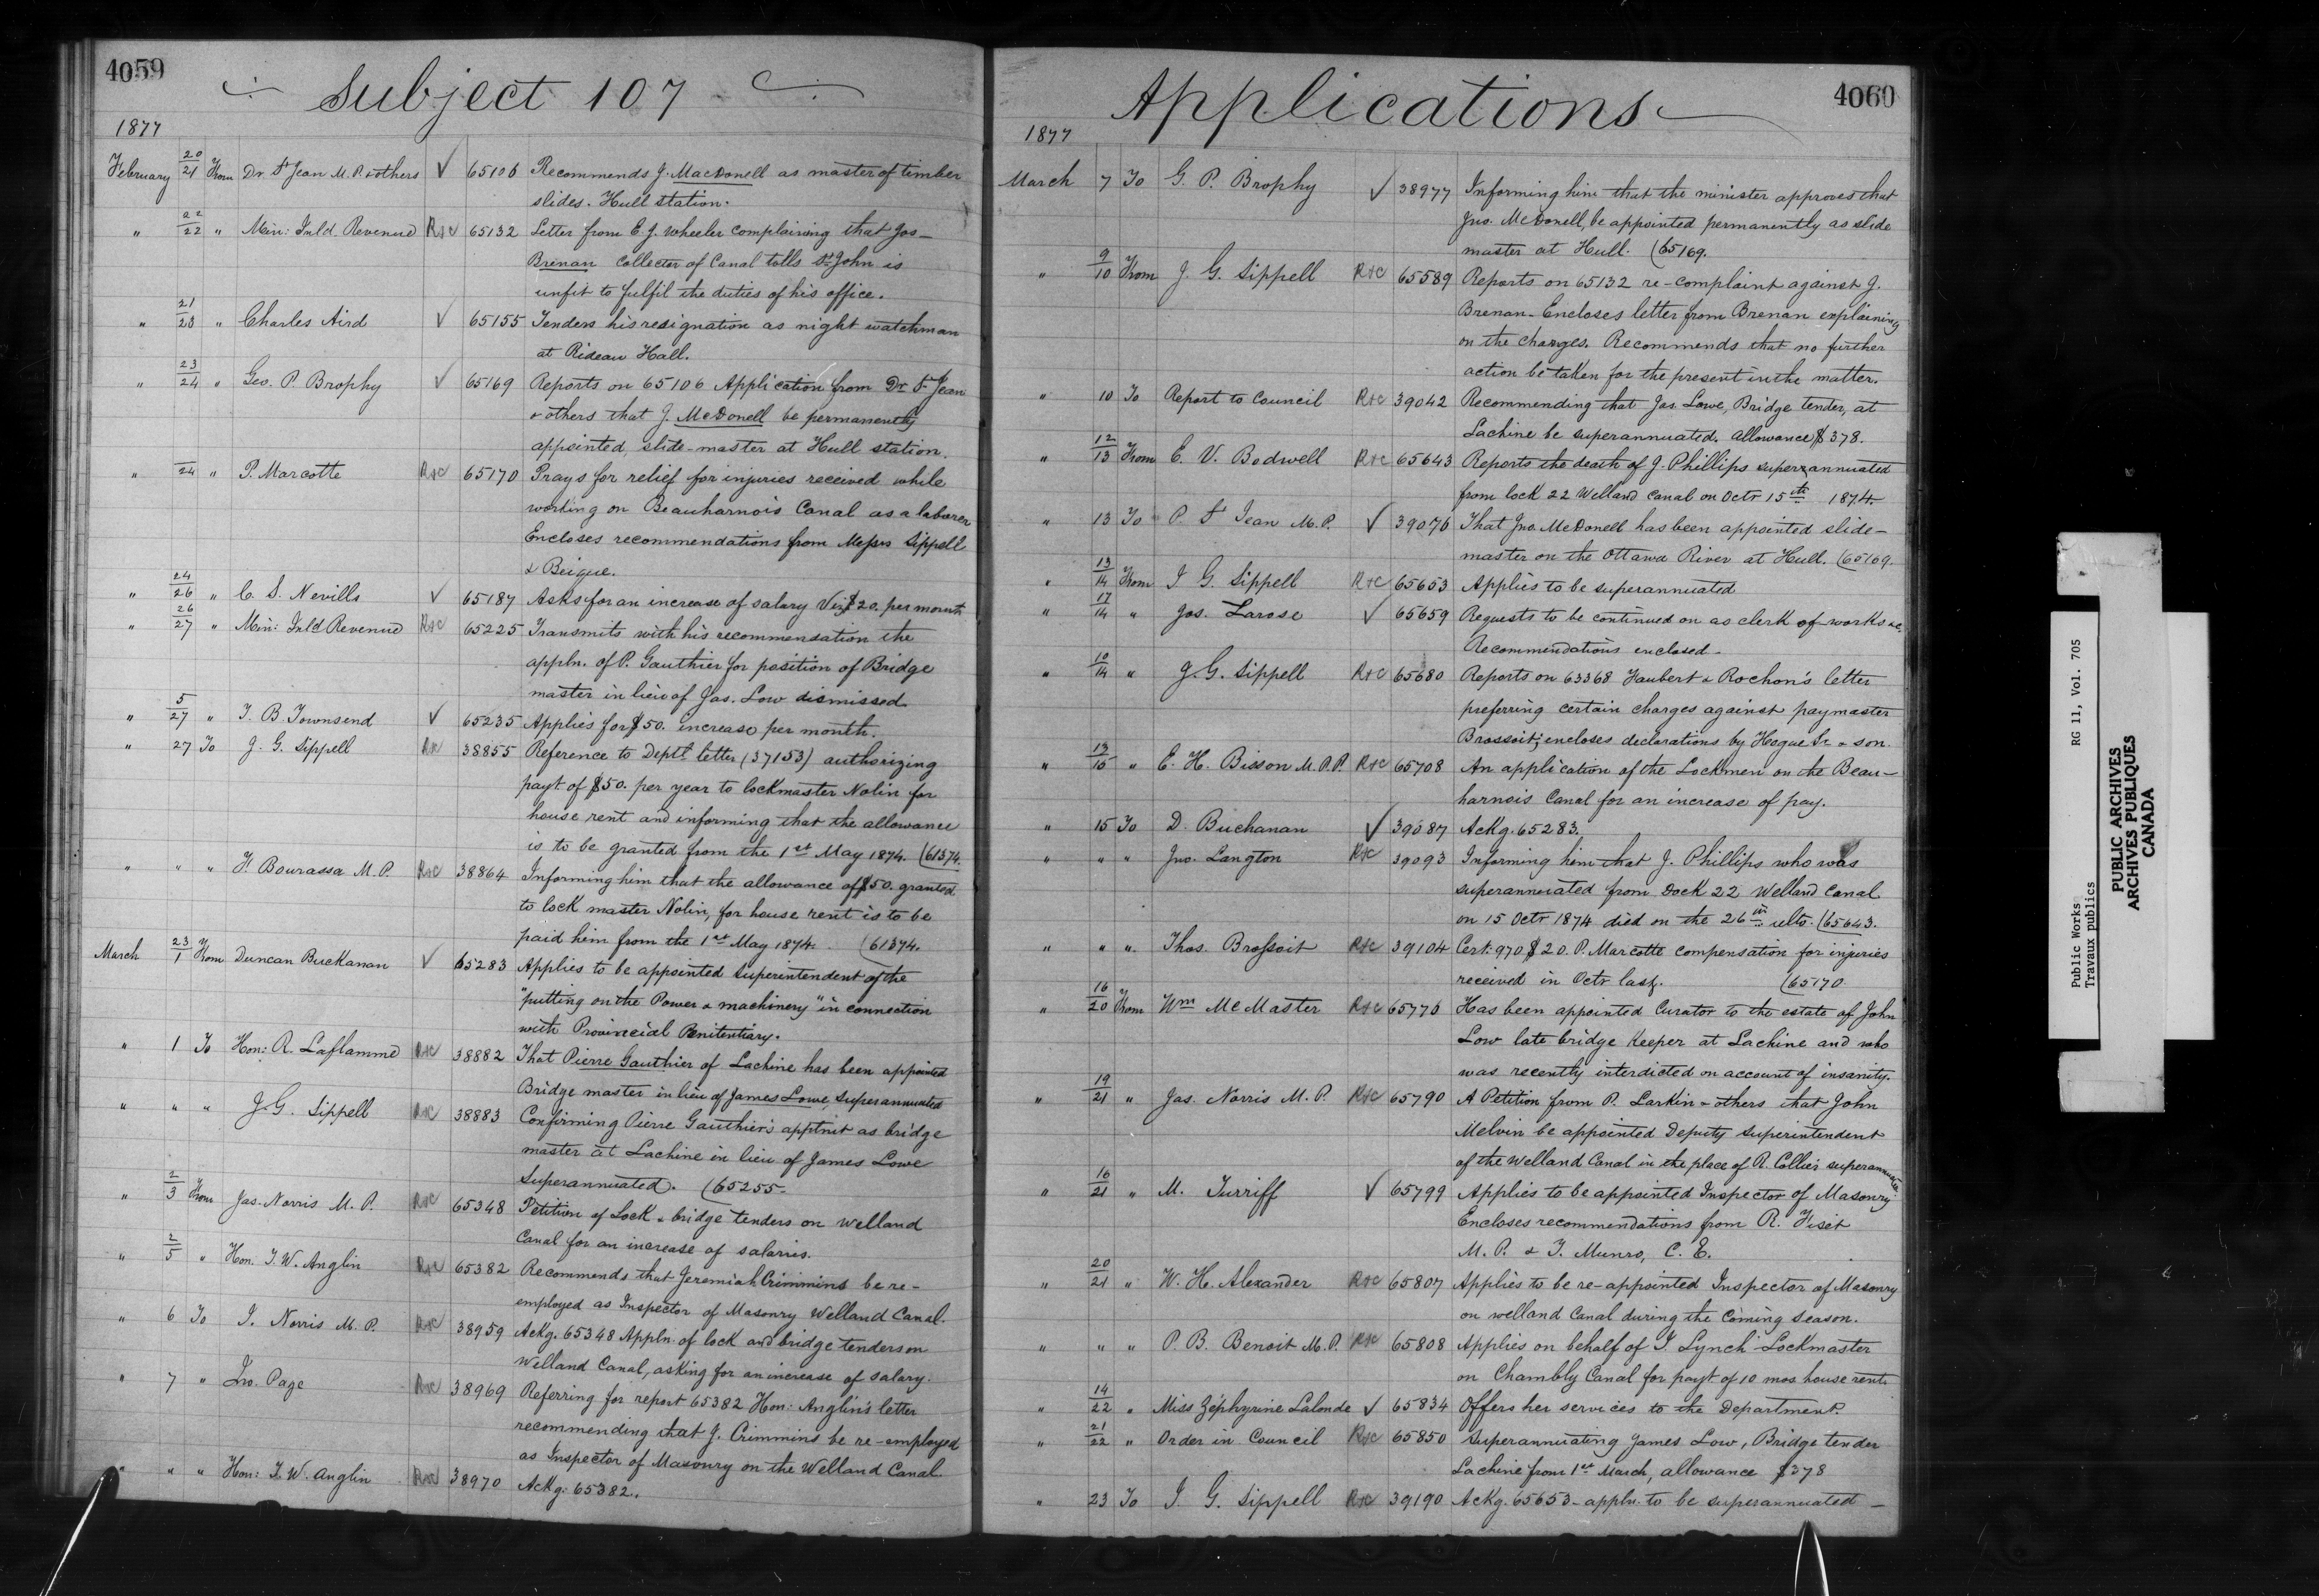 4059
Subject 107
1877
February 20/21 From Dr. St Jean M.P. & others √ 65106 Recommends J. MacDonell as master of timber
slides. Hull station.
" 22/22 " Min: Inld. Revenue R&C 65132 Letter from E. J. Wheeler complaining that Jos-
Brenan Collector of Canal tolls St John is
unfit to fulfil the duties of his office.
" 21/23 " Charles Aird √ 65155 Tenders his resignation as night watchman
at Rideau Hall.
" 23/24 " Geo. P. Brophy √ 65169 Reports on 65106 Application from Dr St Jean
& others that J. McDonell be permanently
appointed, slide-master at Hull station.
" 24 " P. Marcotte R&C 65170 Prays for relief for injuries received while
working on Beauharnois Canal as a laborer
Encloses recommendations from Messrs Sippell
& Beique.
" 24/26 " C. S. Nevills √ 65187 Asks for an increase of salary Viz $20. per month
" 26/27 " Min: Inld Revenue R&C 65225 Transmits with his recommendation the
appln. of P. Gauthier for position of Bridge
master in lieu of Jas. Low dismissed.
" 5/27 " J. B. Townsend √ 65235 Applies for $50. increase per month.
" 27 To J. G. Sippell R&C 38855 Reference to Deptl letter (37153) authorizing
payt of $50. per year to lockmaster Nolin for
house rent and informing that the allowance
is to be granted from the 1st May 1874. (61374.
" " " F. Bourassa M.P. R&C 38864 Informing him that the allowance of $50. granted
to lock master Nolin, for house rent is to be
paid him from the 1st May 1874. (61374.
March 23/1 From Duncan Buckanan √ 65283 Applies to be appointed Superintendent of the
"putting on the Power & machinery" in connection
with Provincial Penitentiary.
" 1 To Hon: R. Laflamme R&C 38882 That Pierre Gauthier of Lachine has been appointed
Bridge master in lieu of James Lowe, superannuated
" " " J. G. Sippell R&C 38883 Confirming Pierre Gauthier's apptmt as bridge
master at Lachine in lieu of James Lowe
Superannuated. (65255.
" 2/3 From Jas. Norris M.P. R&C 65348 Petition of Lock & bridge tenders on Welland
Canal for an increase of salaries.
" 2/5 " Hon. T. W. Anglin R&C 65382 Recommends that Jeremiah Crimmins be re-
employed as Inspector of Masonry Welland Canal.
" 6 To J. Norris M.P. R&C 38959 Ackg. 65348 Appln. of lock and bridge tenders on
Welland Canal, asking for an increase of salary.
" 7 " Jno. Page R&C 38969 Referring for report 65382 Hon: Anglin's letter
recommending that J. Crimmins be re-employed
as Inspector of Masonry on the Welland Canal
" " " Hon: T. W. Anglin R&C 38970 Ackg. 65382.
4060
Applications
1877
March 7 To G. P. Brophy √ 38977 Informing him that the minister approves that
Jno. McDonell, be appointed permanently as slide
master at Hull. (65169.
" 9/10 From J. G. Sippell R&C 65589 Reports on 65132 re-complaint against J.
Brenan. Encloses letter from Brenan explaining
on the charges. Recommends that no further
action be taken for the present in the matter.
" 10 To Report to Council R&C 39042 Recommending that Jas. Lowe, Bridge tender, at
Lachine be superannuated. allowance $378.
" 12/13 From E. V. Bodwell R&C 65643 Reports the death of J. Phillips superannuated
from lock 22 Welland Canal on Octr 15th 1874.
" 13 To P. St Jean M.P. √ 39076 That Jno. McDonell has been appointed slide-
master on the Ottawa River at Hull. (65169.
" 13/14 From J. G. Sippell R&C 65653 Applies to be superannuated
" 17/14 " Jos. Larose √ 65659 Requests to be continued on as clerk of works &c.
Recommendations enclosed.
" 10/14 " J. G. Sippell R&C 65680 Reports on 63368 Faubert & Rochon's letter
preferring certain charges against paymaster
Brossoit; encloses declarations by Hogue Sr. & son.
" 13/15 " E. H. Bisson M.P.P. R&C 65708 An application of the Lockmen on the Beau-
harnois Canal for an increase of pay.
" 15 To D. Buchanan √ 39087 Ackg. 65283.
" " " Jno. Langton R&C 39093 Informing him that J. Phillips who was
superannuated from Lock 22 Welland Canal
on 15 Octr 1874 died on the 26th ulto. (65643.
" " " Thos. Brossoit R&C 39104 Cert: 970 $20. P. Marcotte compensation for injuries
received in Octr last. (65170
" 16/20 From Wm McMaster R&C 65776 Has been appointed Curator to the estate of John
Low late bridge keeper at Lachine and who
was recently interdicted on account of insanity.
" 19/21 " Jas. Norris M.P. R&C 65790 A Petition from P. Larkin & others that John
Melvin be appointed Deputy Superintendent
of the Welland Canal in the place of R. Collier superannuated
" 16/21 " M. Turriff √ 65799 Applies to be appointed Inspector of Masonry
Encloses recommendations from R. Fiset
M.P. & T. Munro, C.E.
" 20/21 " W. H. Alexander R&C 65807 Applies to be re-appointed Inspector of Masonry
on Welland Canal during the Coming Season.
" " " P. B. Benoit M.P. R&C 65808 Applies on behalf of J. Lynch Lockmaster
on Chambly Canal for payt of 10 mos house rent.
" 14/22 " Miss Zéphyrine Lalonde √ 65834 Offers her services to the Department.
" 21/22 " Order in Council R&C 65850 Superannuating James Low, Bridge tender
Lachine from 1st March, allowance $378
" 23 To J. G. Sippell R&C 39190 Ackg. 65653 - appln. to be superannuated -
Public Works RG 11, Vol. 705
Travaux publics
PUBLIC ARCHIVES
ARCHIVES PUBLIQUES
CANADA